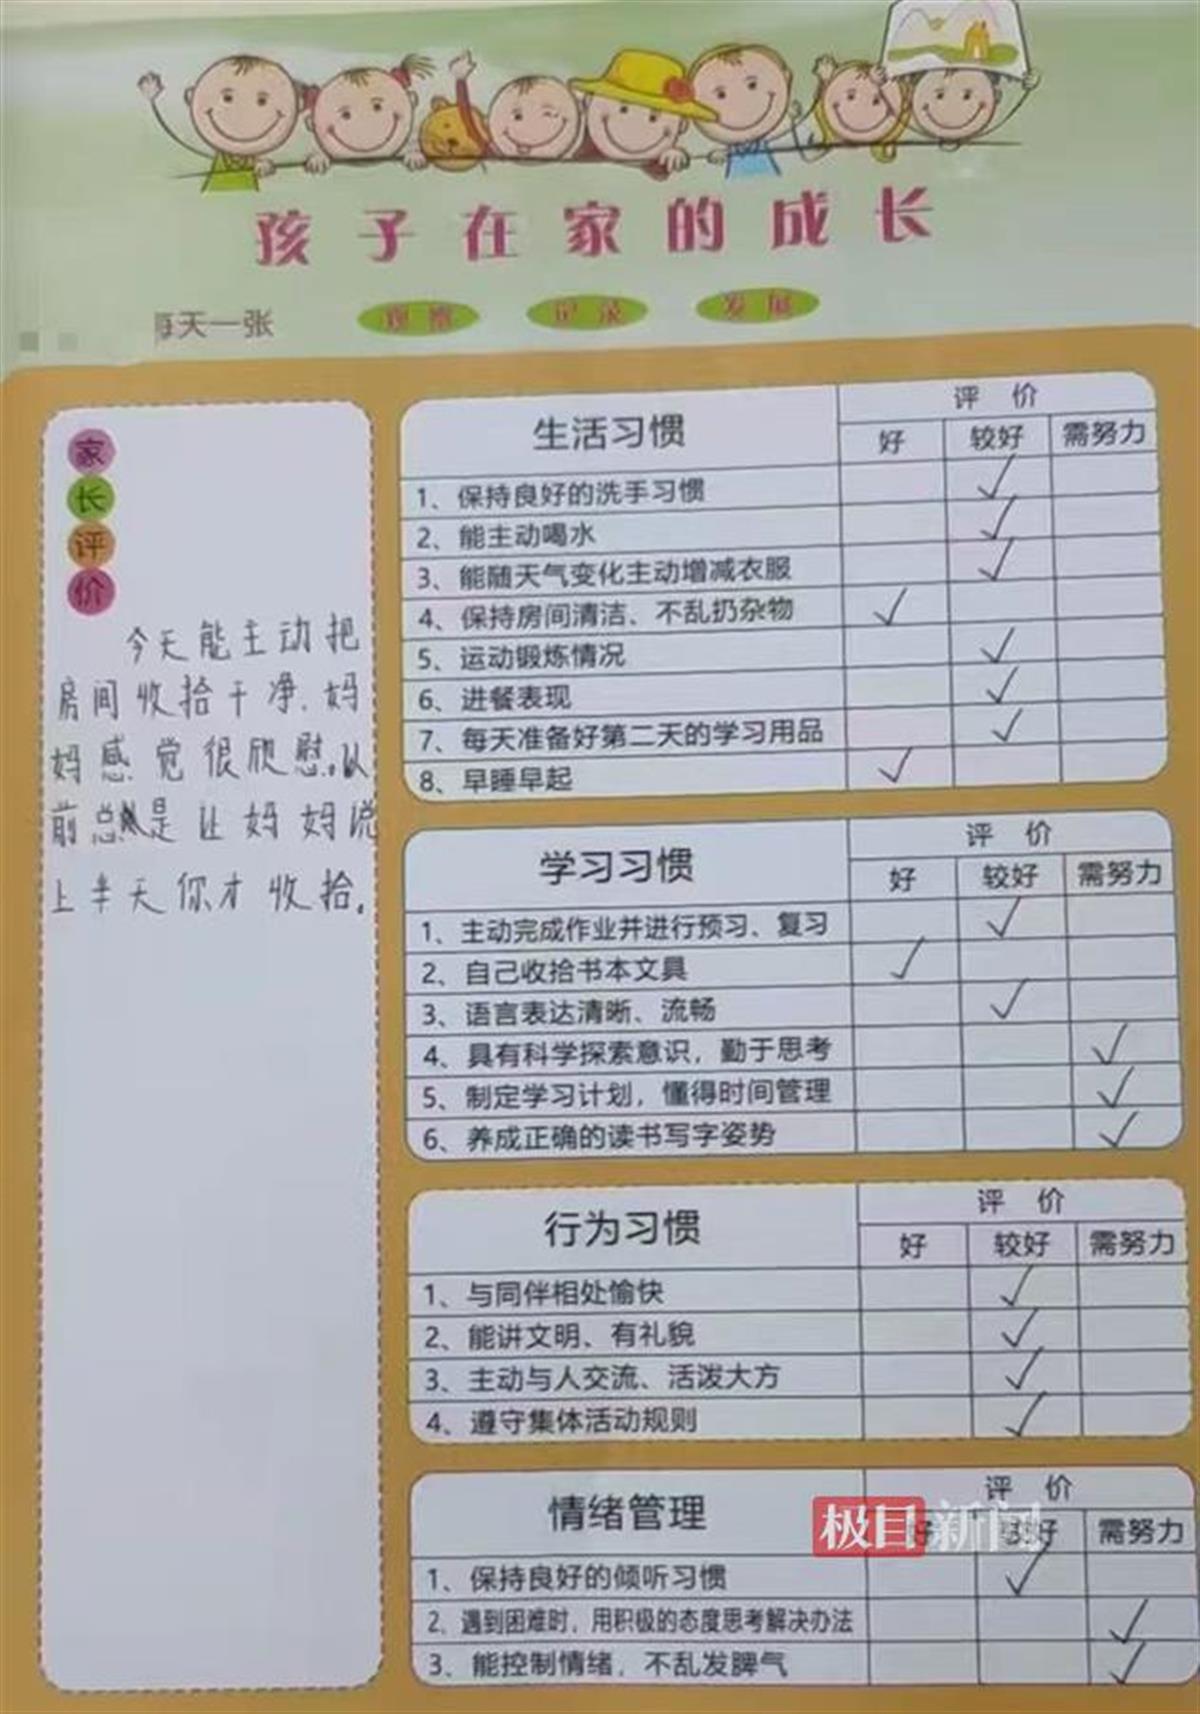 孩子在家的成长
每天一张
观察 记录 发展
家长评价
今天能主动把
房间收拾干净,妈
妈感觉很欣慰。以
前总是让妈妈说
上半天你才收拾。
生活习惯 评价
好 较好 需努力
1、保持良好的洗手习惯 ✓
2、能主动喝水 ✓
3、能随天气变化主动增减衣服 ✓
4、保持房间清洁、不乱扔杂物 ✓
5、运动锻炼情况 ✓
6、进餐表现 ✓
7、每天准备好第二天的学习用品 ✓
8、早睡早起 ✓
学习习惯 评价
好 较好 需努力
1、主动完成作业并进行预习、复习 ✓
2、自己收拾书本文具 ✓
3、语言表达清晰、流畅 ✓
4、具有科学探索意识，勤于思考 ✓
5、制定学习计划，懂得时间管理 ✓
6、养成正确的读书写字姿势 ✓
行为习惯 评价
好 较好 需努力
1、与同伴相处愉快 ✓
2、能讲文明、有礼貌 ✓
3、主动与人交流、活泼大方 ✓
4、遵守集体活动规则 ✓
情绪管理 评价
好 较好 需努力
极目新闻
1、保持良好的倾听习惯 ✓
2、遇到困难时，用积极的态度思考解决办法 ✓
3、能控制情绪，不乱发脾气 ✓